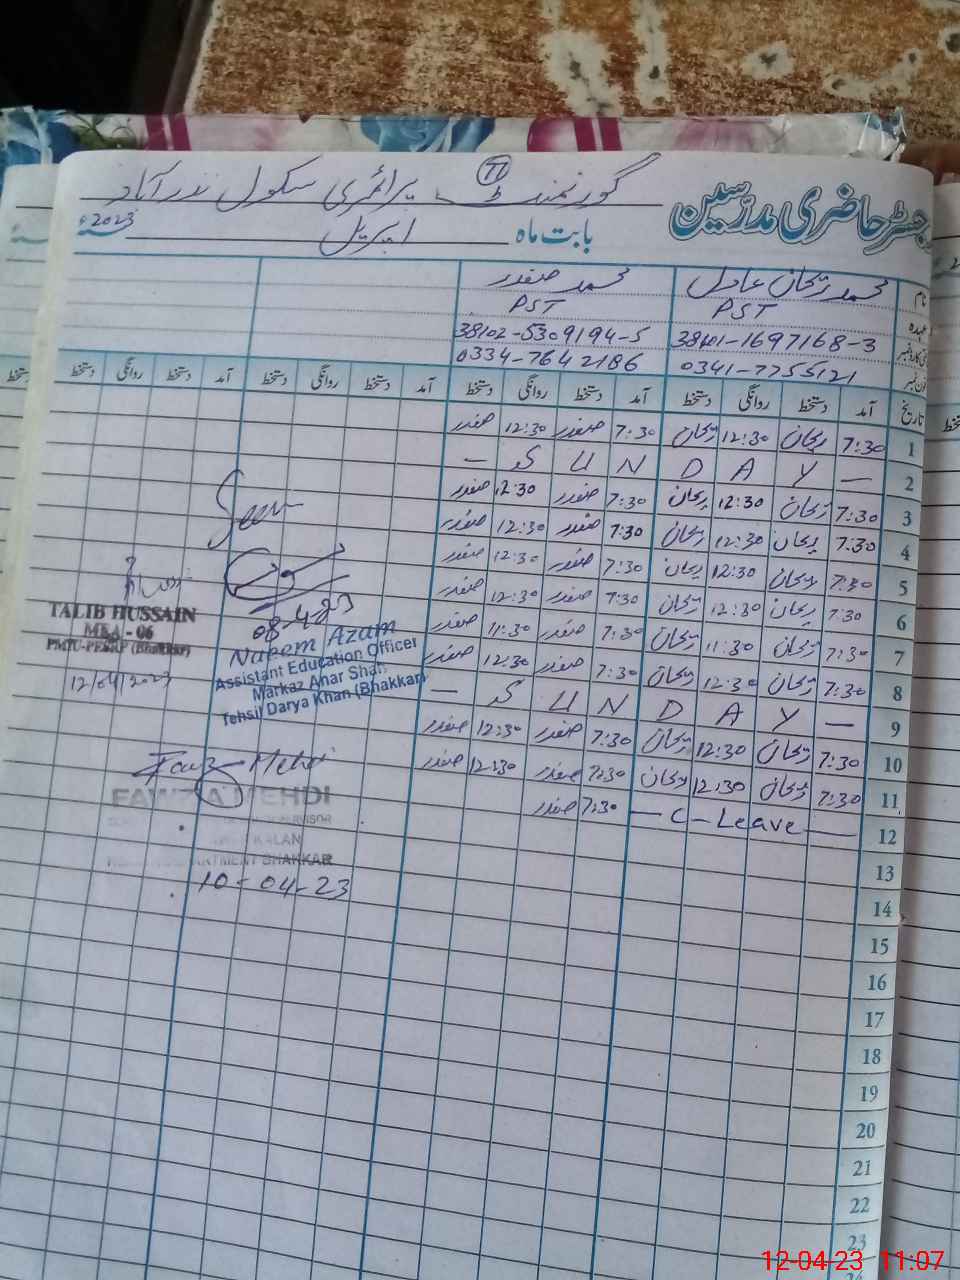 رجسٹر حاضری مدرسین
گورنمنٹ پرائمری سکول نذر آباد
77
بابت ماہ اپریل 2023ء
نام محمد ریحان عادل محمد صفدر
عہدہ PST PST
38401-1697168-3 38102-5309194-5
فون نمبر 0341-7755121 0334-7642186
تاریخ آمد دستخط روانگی دستخط آمد دستخط روانگی دستخط آمد دستخط روانگی دستخط آمد دستخط روانگی دستخط
1 7:30 ریحان 12:30 ریحان 7:30 صفدر 12:30 صفدر
2 — S U N D A Y —
3 7:30 ریحان 12:30 ریحان 7:30 صفدر 12:30 صفدر
4 7:30 ریحان 12:30 ریحان 7:30 صفدر 12:30 صفدر
5 7:30 ریحان 12:30 ریحان 7:30 صفدر 12:30 صفدر
6 7:30 ریحان 12:30 ریحان 7:30 صفدر 12:30 صفدر
7 7:30 ریحان 11:30 ریحان 7:30 صفدر 11:30 صفدر
8 7:30 ریحان 12:30 ریحان 7:30 صفدر 12:30 صفدر
9 — S U N D A Y —
10 7:30 ریحان 12:30 ریحان 7:30 صفدر 12:30 صفدر
11 7:30 ریحان 12:30 ریحان 7:30 صفدر 12:30 صفدر
12 — C - Leave — 7:30 صفدر
13
14
15
16
17
18
19
20
21
22
23
Seen
08-4-23
Naeem Azam
Assistant Education Officer
Markaz Anar Shah
Tehsil Darya Khan (Bhakkar)
TALIB HUSSAIN
MEA - 06
PMIU-PESRP (Bhakkar)
12/04/2023
Fawz Mehdi
FAWZIA MEHDI
KALAN
DEPARTMENT BHAKKAR
10-04-23
12-04-23 11:07